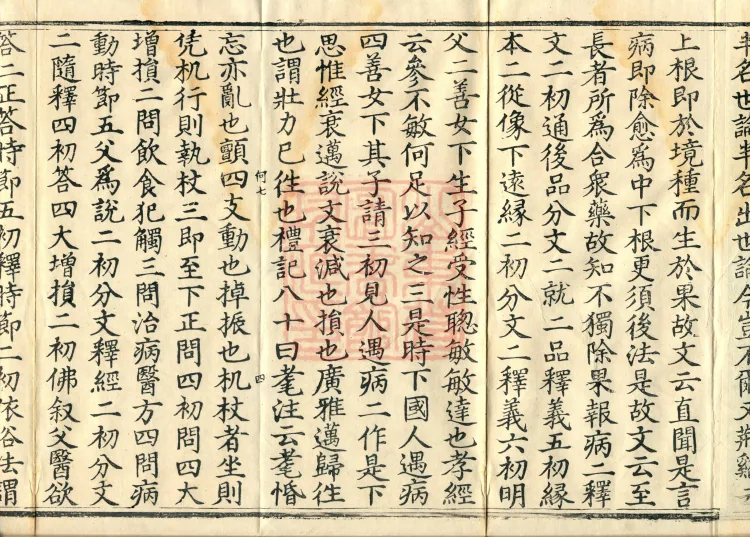 上根即於境種而生於果故文云直聞是言
病即除愈爲中下根更須後法是故文云至
長者所爲合衆藥故知不獨除果報病二釋
文二初通後品分文二就二品釋義五初縁
本二從像下遠縁二初分文二釋義六初明
父二善女下生子經受性聦敏敏達也孝經
云參不敏何足以知之三是時下國人遇病
四善女下其子請三初見人遇病二作是下
思惟經衰邁說文衰減也損也廣雅邁歸徃
也謂壯力巳徃也禮記八十曰耄注云耄惛
何七
四
忘亦亂也顫四支動也掉振也机杖者坐則
凭机行則執杖三即至下正問四初問四大
増損二問飲食犯觸三問治病醫方四問病
動時節五父爲說二初分文釋經二初分文
二隨釋四初答四大増損二初佛叙父醫欲
答二正答時節五初釋時節二初依俗法謂